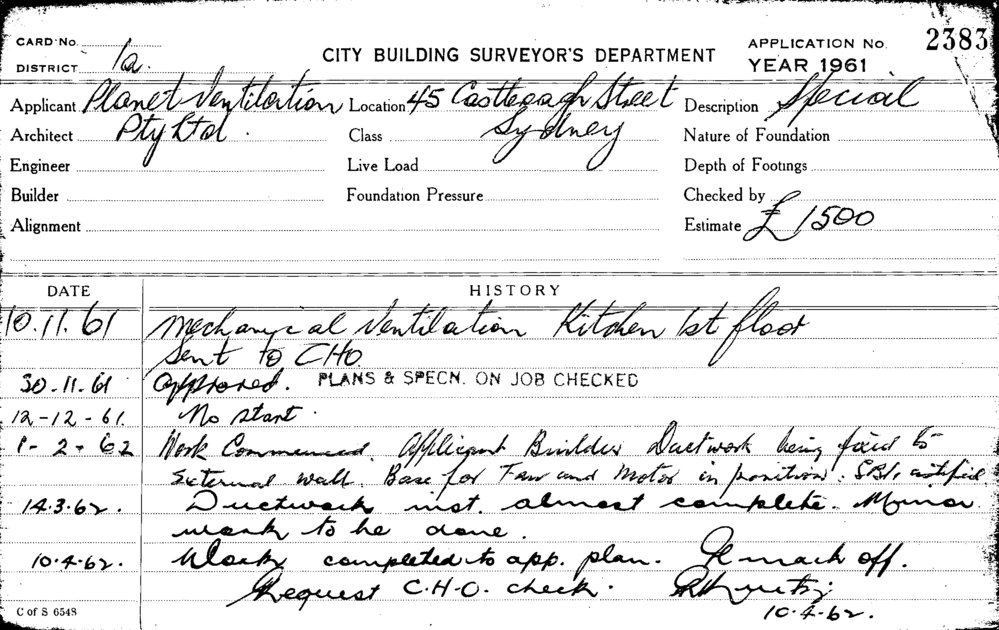 CARD No.
DISTRICT 1a.
CITY BUILDING SURVEYOR'S DEPARTMENT
APPLICATION No. 2383
YEAR 1961
Applicant Planet Ventilation Location 45 Castlereagh Street Description Special
Architect Pty Ltd. Class Sydney Nature of Foundation
Engineer Live Load Depth of Footings
Builder Foundation Pressure Checked by
Alignment Estimate £1500
DATE HISTORY
10.11.61 Mechanical Ventilation Kitchen 1st floor
Sent to CHO
30.11.61 Approved. PLANS & SPECN. ON JOB CHECKED
12-12-61. No start.
1-2-62 Work Commenced. Applicant Builder Ductwork being fixed to
External wall. Base for Fan and Motor in position. S.B.I. notified
14.3.62. Ductwork inst. almost complete. Minor
work to be done.
10.4.62. Work completed to app. plan. mark off.
Request C.H.O. check.
10.4.62.
C of S 6548